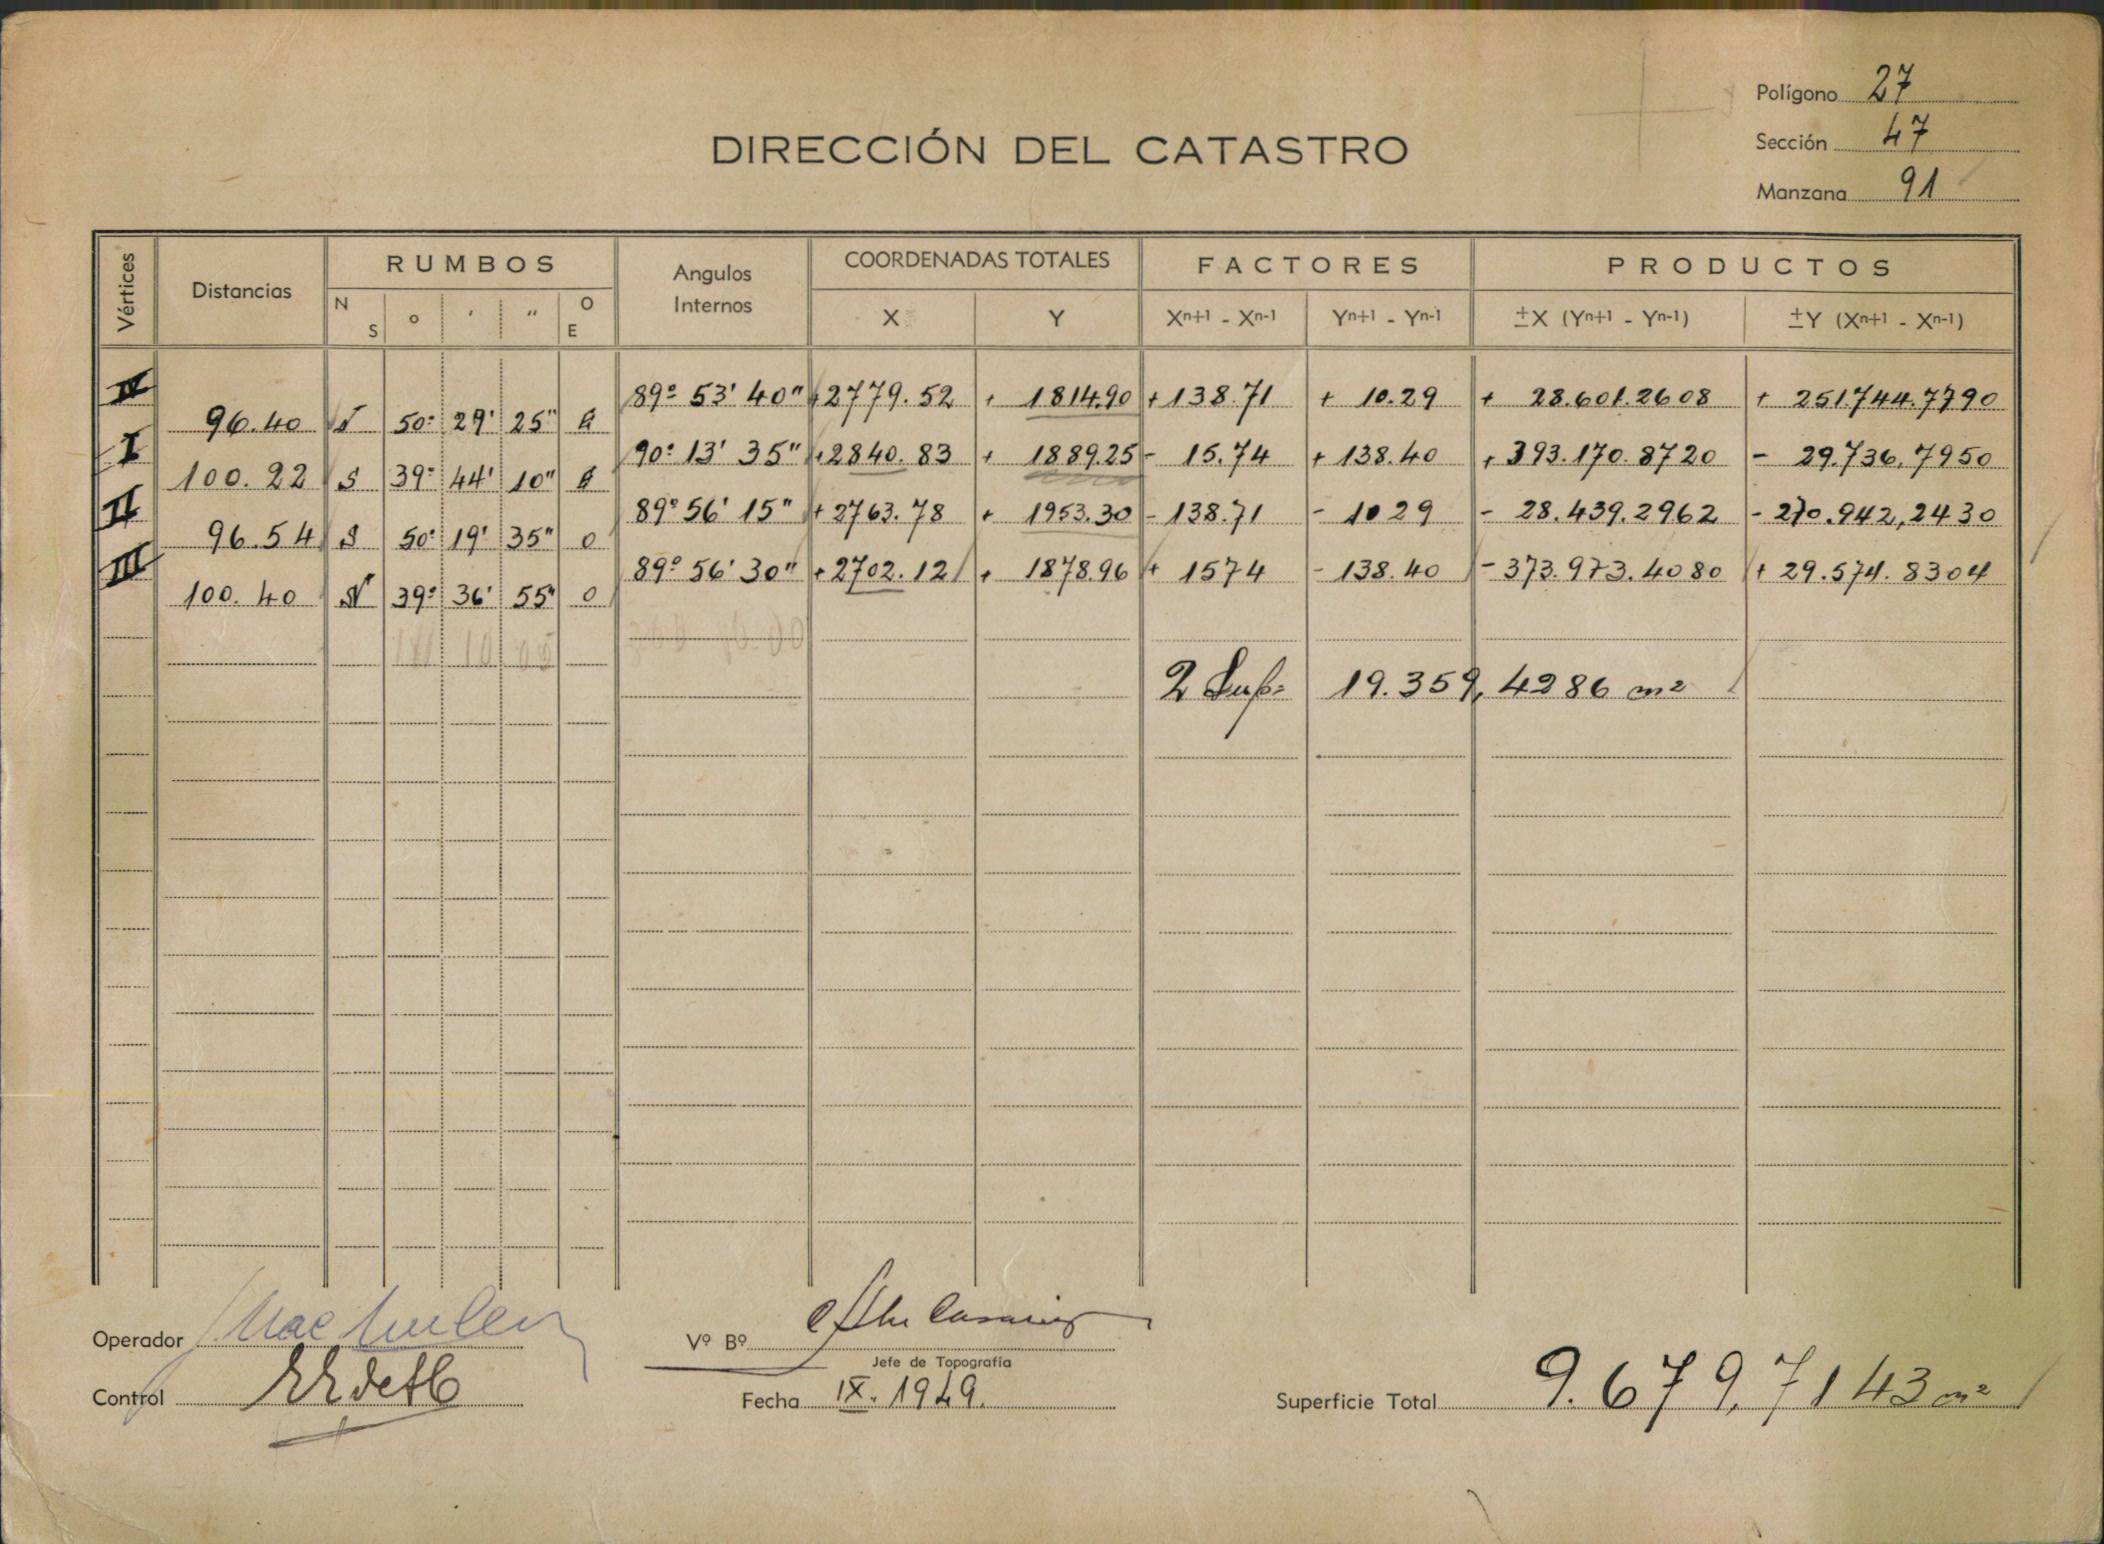 Polígono 27
Sección 47
Manzana 91
DIRECCIÓN DEL CATASTRO
Vértices Distancias RUMBOS Angulos Internos COORDENADAS TOTALES FACTORES PRODUCTOS
N S o ' " O E X Y Xn+1 - Xn-1 Yn+1 - Yn-1 ±X (Yn+1 - Yn-1) ±Y (Xn+1 - Xn-1)
IV 89° 53' 40" +2779.52 + 1814.90 +138.71 + 10.29 + 28.601.2608 + 251.744.7790
96.40 N 50° 29' 25" E
I 90° 13' 35" +2840.83 + 1889.25 - 15.74 +138.40 +393.170.8720 - 29.736,7950
100.22 S 39° 44' 10" E
II 89° 56' 15" +2763.78 + 1953.30 -138.71 - 10 29 - 28.439.2962 -270.942,2430
96.54 S 50° 19' 35" O
III 89° 56' 30" +2702.12 + 1878.96 + 1574 -138.40 -373.973.4080 + 29.574.8304
100.40 N 39° 36' 55" O
2 Sup= 19.359,4286 m2
Operador
Vº Bº
Jefe de Topografía
Control
Fecha IX. 1949.
Superficie Total 9.679,7143 m²